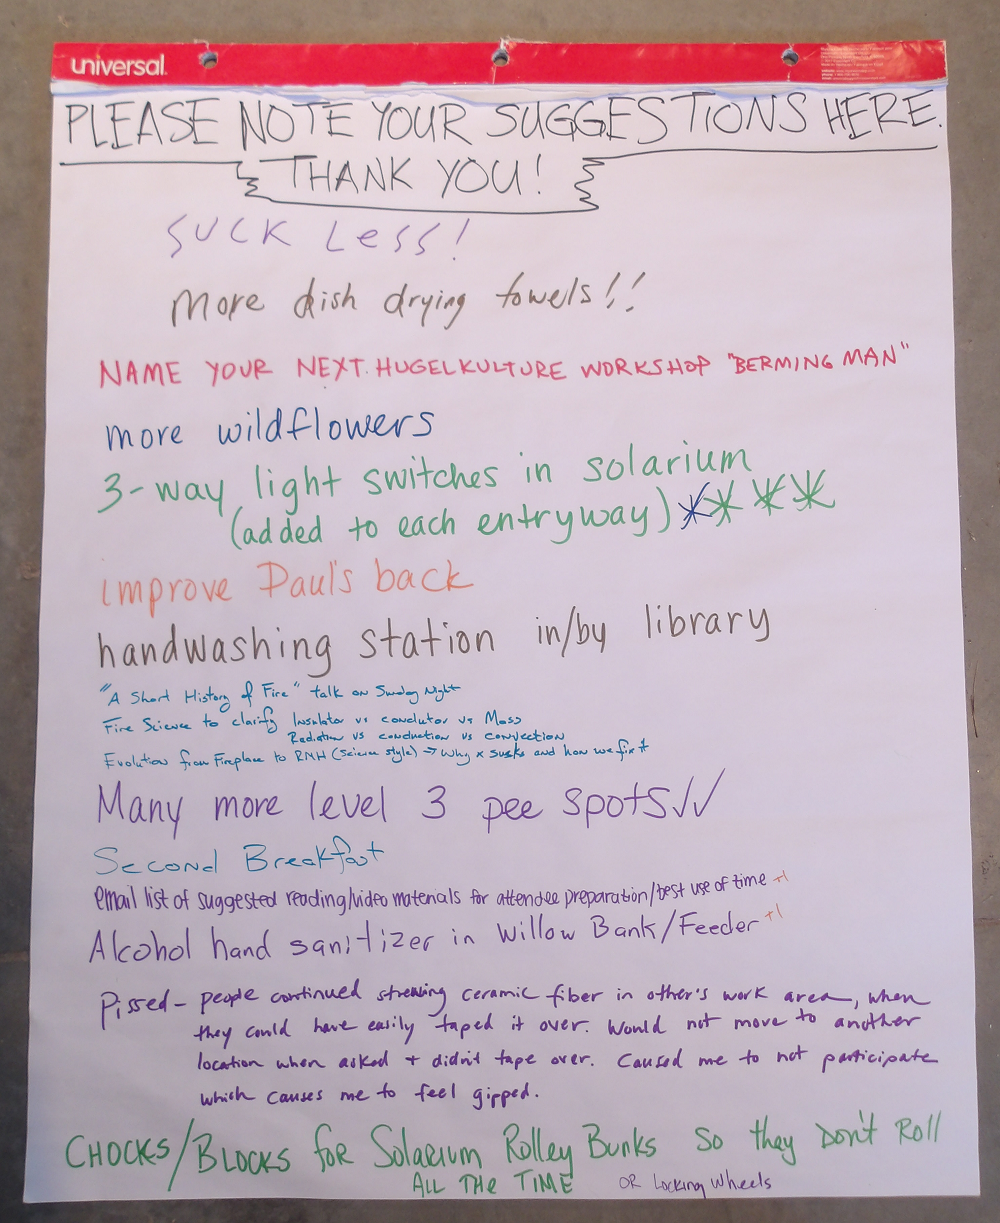 universal
PLEASE NOTE YOUR SUGGESTIONS HERE.
THANK YOU!
SUCK LESS!
more dish drying towels!!
NAME YOUR NEXT HUGELKULTURE WORKSHOP "BERMING MAN"
more wildflowers
3-way light switches in solarium
(added to each entryway)
improve Paul's back
handwashing station in/by library
"A Short History of Fire" talk on Sunday Night
Fire Science to clarify Insulator vs conductor vs Mass
Radiation vs conduction vs convection
Evolution from Fireplace to RMH (science style) → Why x sucks and how we fix it
Many more level 3 pee spots✓✓
Second Breakfast
email list of suggested reading/video materials for attendee preparation/best use of time +1
Alcohol hand sanitizer in Willow Bank/Feeder +1
Pissed - people continued strewing ceramic fiber in other's work area, when
they could have easily taped it over. Would not move to another
location when asked + didn't tape over. Caused me to not participate
which causes me to feel gipped.
CHOCKS/BLOCKS for Solarium Rolley Bunks so they Don't Roll
ALL THE TIME OR Locking Wheels